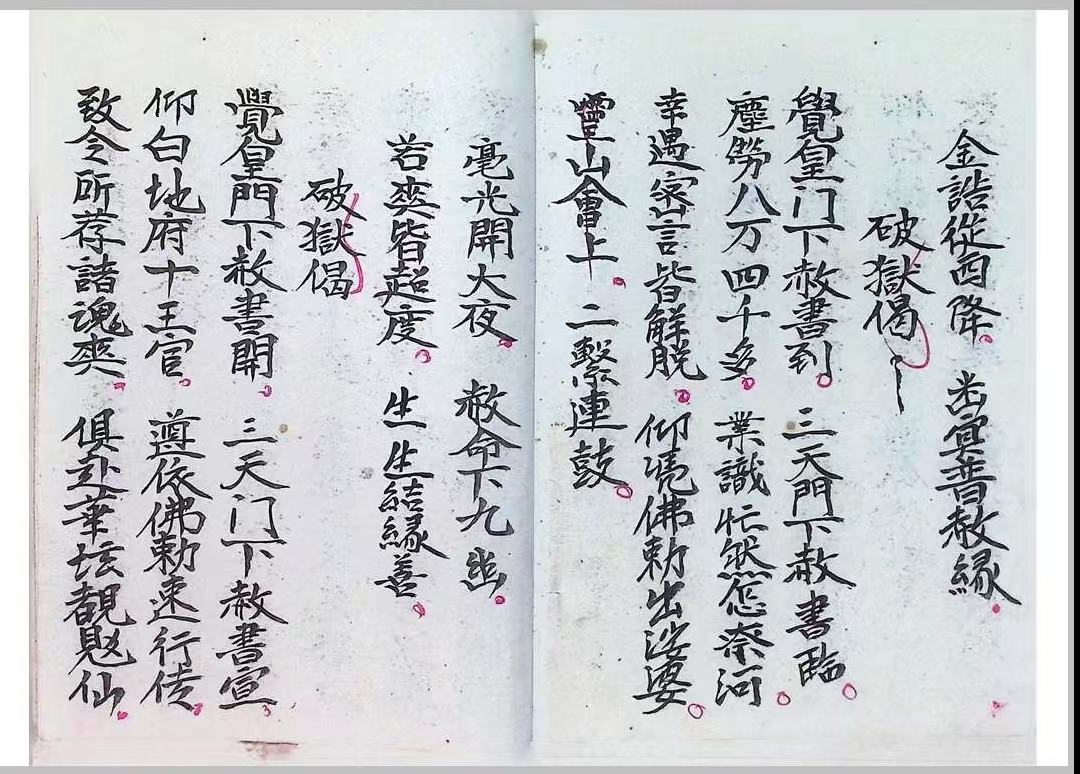 金誥從西降 幽冥普赦緣
破獄偈
覺皇门下赦書到 三天門下赦書臨
塵勞八万四千多 業識忙然怎奈河
幸遇密言皆解脱 仰凴佛勅出娑婆
靈山會上 二繫連鼓
毫光開大夜 赦命下九幽
若奕皆超度 生生結緣善
破獄偈
覺皇門下赦書開 三天门下赦書宣
仰白地府十王官 遵依佛勅速行传
致令所荐諸魂奕 俱赴華坛覩
仙